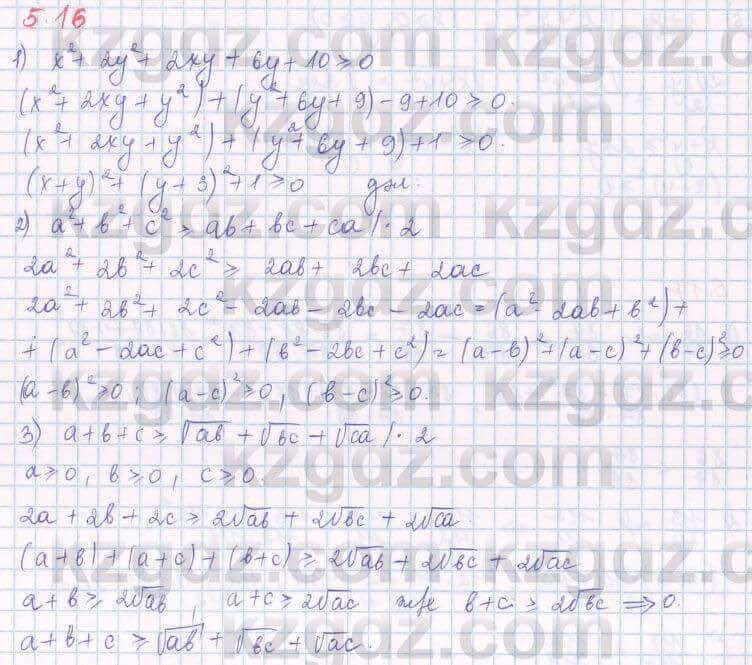 5.16
1) x² + 2y² + 2xy + 6y + 10 ≥ 0
(x² + 2xy + y²) + (y² + 6y + 9) - 9 + 10 ≥ 0.
(x² + 2xy + y²) + (y² + 6y + 9) + 1 ≥ 0.
(x+y)² + (y+3)² + 1 ≥ 0 дәл.
2) a² + b² + c² ≥ ab + bc + ca /·2
2a² + 2b² + 2c² ≥ 2ab + 2bc + 2ac
2a² + 2b² + 2c² - 2ab - 2bc - 2ac = (a² - 2ab + b²) +
+ (a² - 2ac + c²) + (b² - 2bc + c²) = (a-b)² + (a-c)² + (b-c)² ≥ 0
(a-b)² ≥ 0; (a-c)² ≥ 0, (b-c)² ≥ 0.
3) a + b + c ≥ √ab + √bc + √ca /·2
a ≥ 0, b ≥ 0, c ≥ 0.
2a + 2b + 2c ≥ 2√ab + 2√bc + 2√ca.
(a+b) + (a+c) + (b+c) ≥ 2√ab + 2√bc + 2√ac
a+b ≥ 2√ab, a+c ≥ 2√ac және b+c ≥ 2√bc ⟹ 0.
a + b + c ≥ √ab + √bc + √ac.
kzgdz.com kzgdz.com